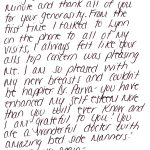 and thank all of you
for your generosity. From the
first time I talked to Lynn
on the phone to all of my
visits, I always felt like your
top concern was pleasing
me. I am so pleased with
my new breasts and couldn't
be happier Dr. Parva - you have
enhanced my self esteem more
than you will ever know and
I am grateful to you. You
are a wonderful doctor with
amazing bed side manners.